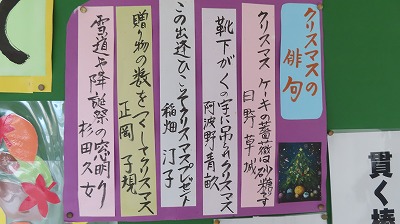 クリスマスの俳句
クリスマスケーキの薔薇は砂糖です
日野草城
靴下がくの字に吊られクリスマス
阿波野青畝
この出逢ひこそクリスマスプレゼント
稲畑汀子
贈り物の数を
クリスマス
正岡子規
雪道や降誕祭の窓明り
杉田久女
貫く棒